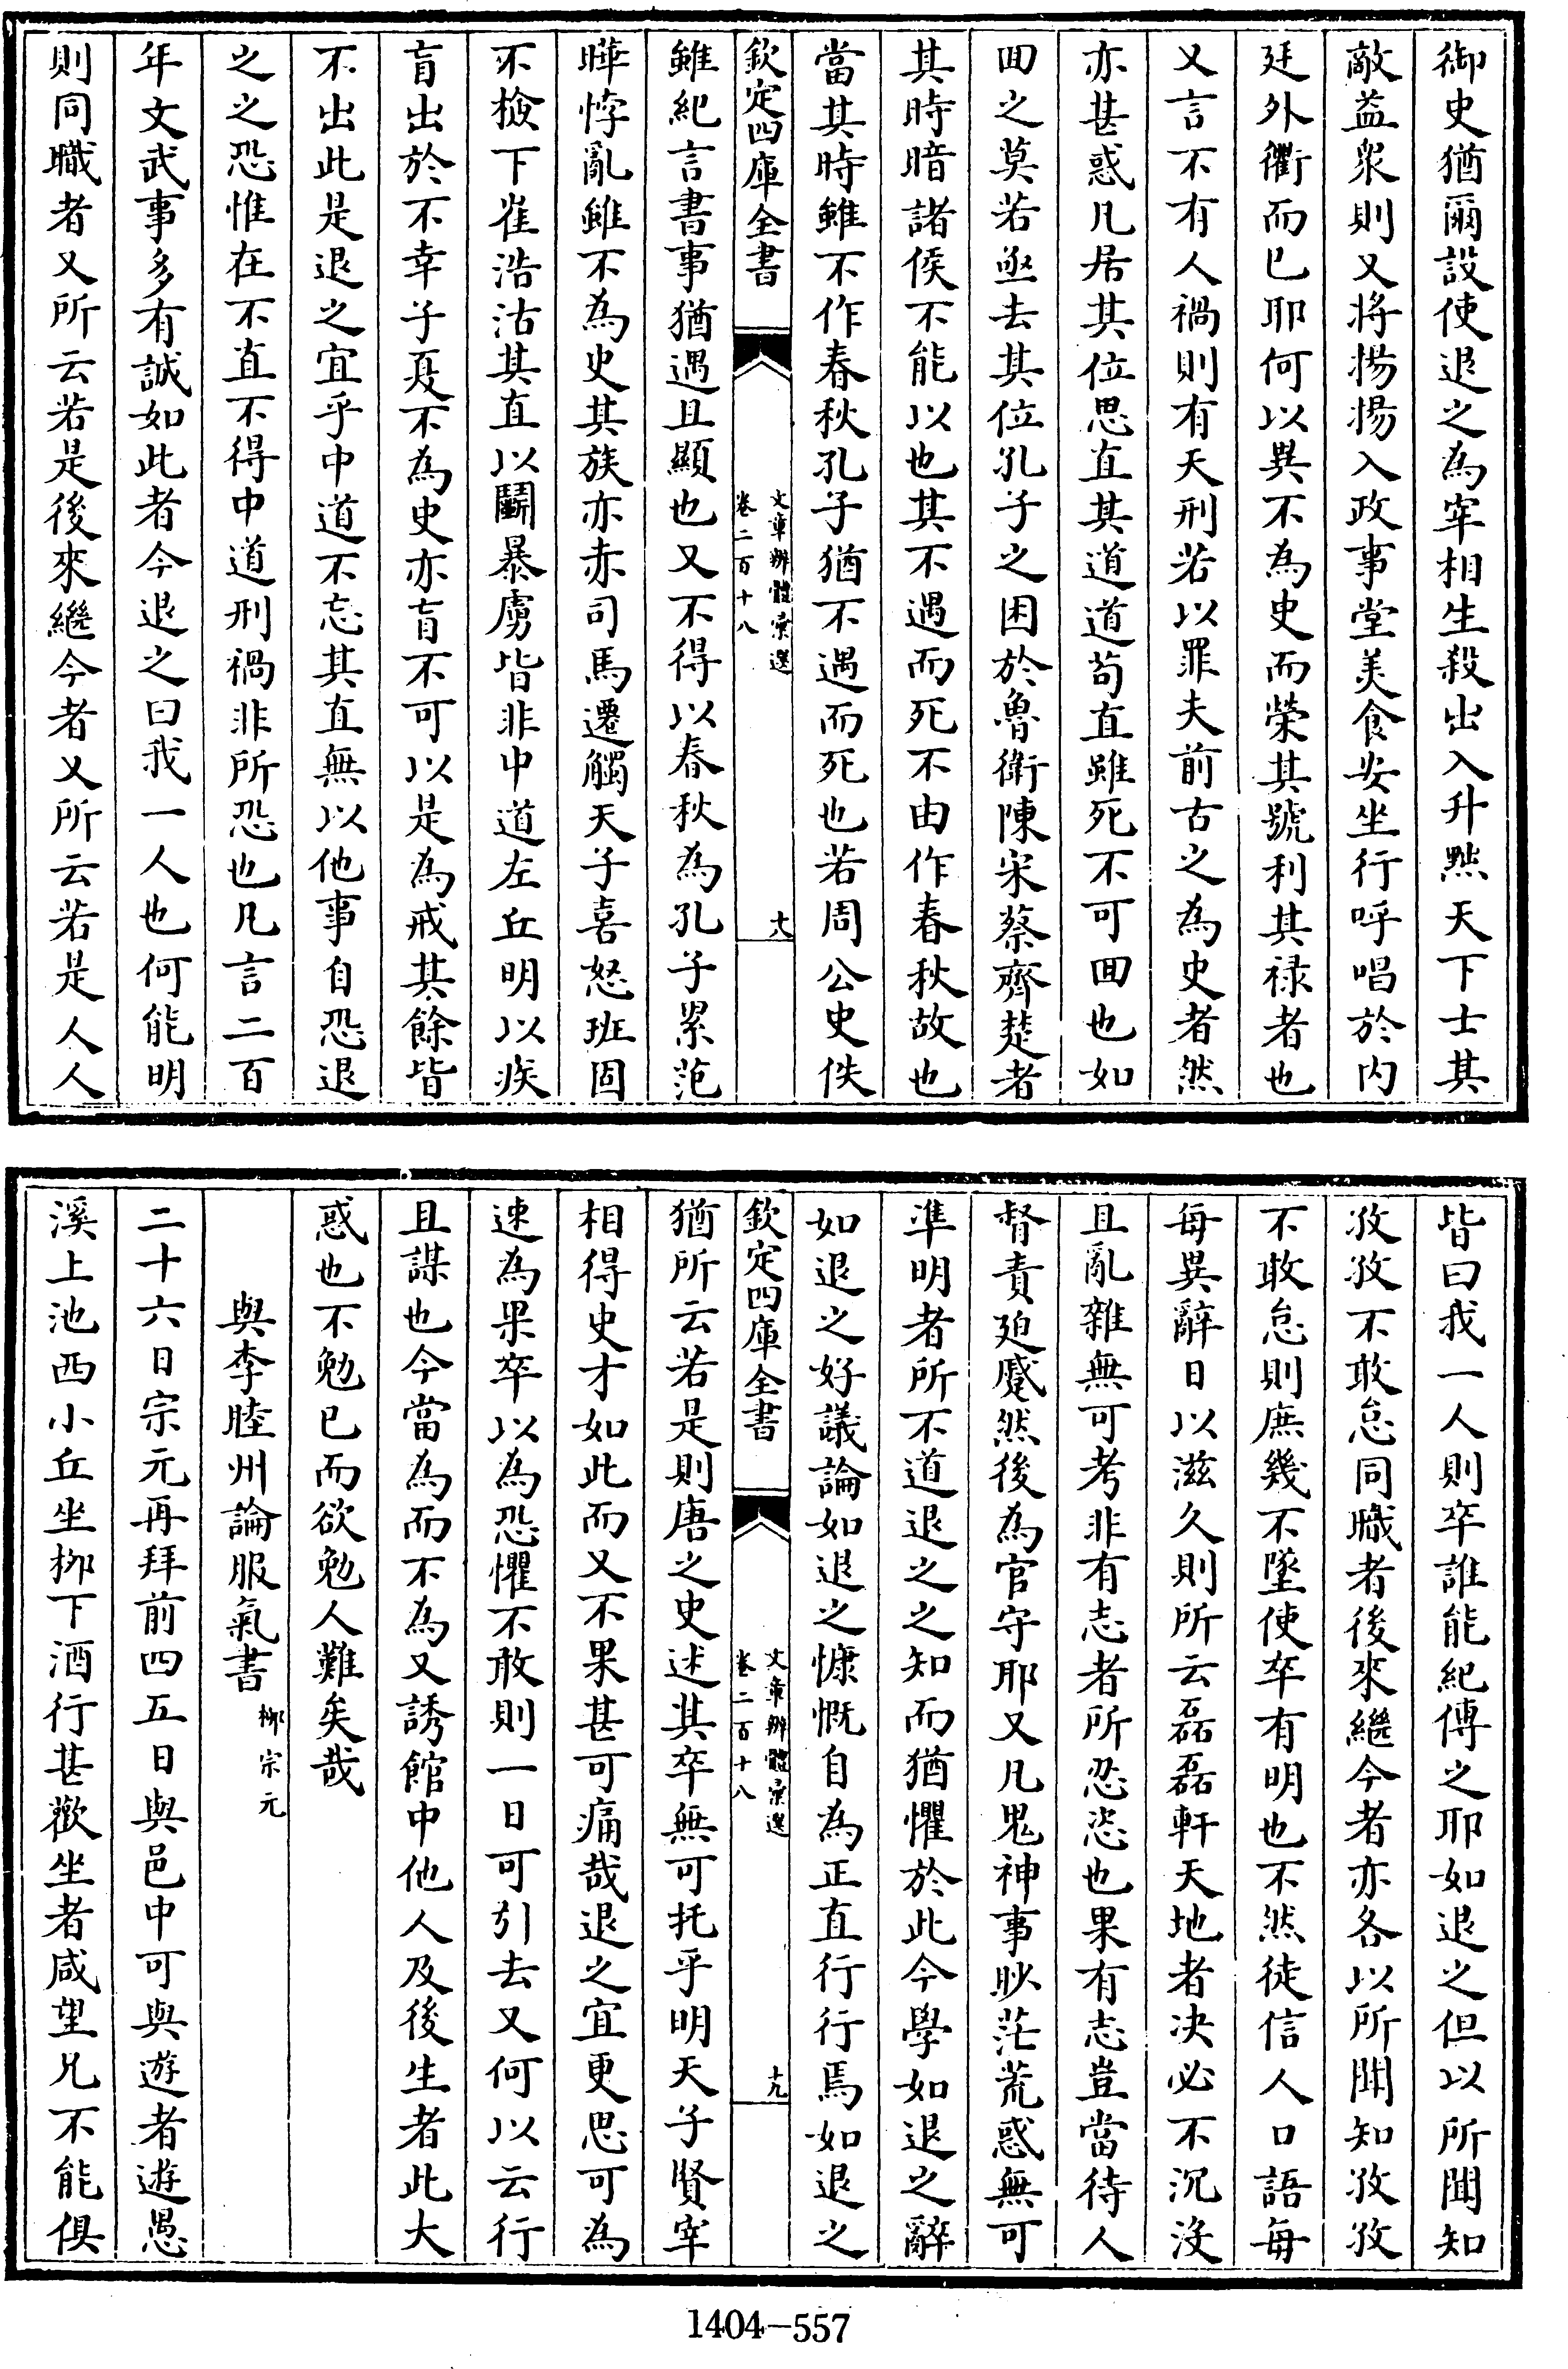 御史猶爾設使退之為宰相生殺出入升黜天下士其
敵益衆則又將揚揚入政事堂美食安坐行呼唱於内
廷外衢而已耶何以異不為史而榮其號利其禄者也
又言不有人禍則有天刑若以罪夫前古之為史者然
亦甚惑凡居其位思直其道道苟直雖死不可囬也如
囬之莫若亟去其位孔子之困於魯衛陳宋蔡齊楚者
其時暗諸侯不能以也其不遇而死不由作春秋故也
當其時雖不作春秋孔子猶不遇而死也若周公史佚
欽定四庫全書
文章辨體彙選
卷二百十八
十八
雖紀言書事猶遇且顯也又不得以春秋為孔子累范
曄悖亂雖不為史其族亦赤司馬遷觸天子喜怒班固
不檢下崔浩沽其直以鬭暴虜皆非中道左丘明以疾
盲出於不幸子夏不為史亦盲不可以是為戒其餘皆
不出此是退之宜乎中道不忘其直無以他事自恐退
之之恐惟在不直不得中道刑禍非所恐也凡言二百
年文武事多有誠如此者今退之曰我一人也何能明
則同職者又所云若是後來繼今者又所云若是人人
皆曰我一人則卒誰能紀傳之耶如退之但以所聞知
孜孜不敢怠同職者後來繼今者亦各以所聞知孜孜
不敢怠則庶幾不墜使卒有明也不然徒信人口語每
每異辭日以滋久則所云磊磊軒天地者决必不沉没
且亂雜無可考非有志者所忍恣也果有志豈當待人
督責廹蹙然後為官守耶又凡鬼神事眇茫荒惑無可
凖明者所不道退之之知而猶懼於此今學如退之辭
如退之好議論如退之慷慨自為正直行行焉如退之
欽定四庫全書
文章辨體彙選
卷二百十八
十九
猶所云若是則唐之史述其卒無可托乎明天子賢宰
相得史才如此而又不果甚可痛哉退之宜更思可為
速為果卒以為恐懼不敢則一日可引去又何以云行
且謀也今當為而不為又誘館中他人及後生者此大
惑也不勉已而欲勉人難矣哉
與李睦州論服氣書 柳宗元
二十六日宗元再拜前四五日與邑中可與遊者遊愚
溪上池西小丘坐桞下酒行甚歡坐者咸望兄不能俱
1404-557